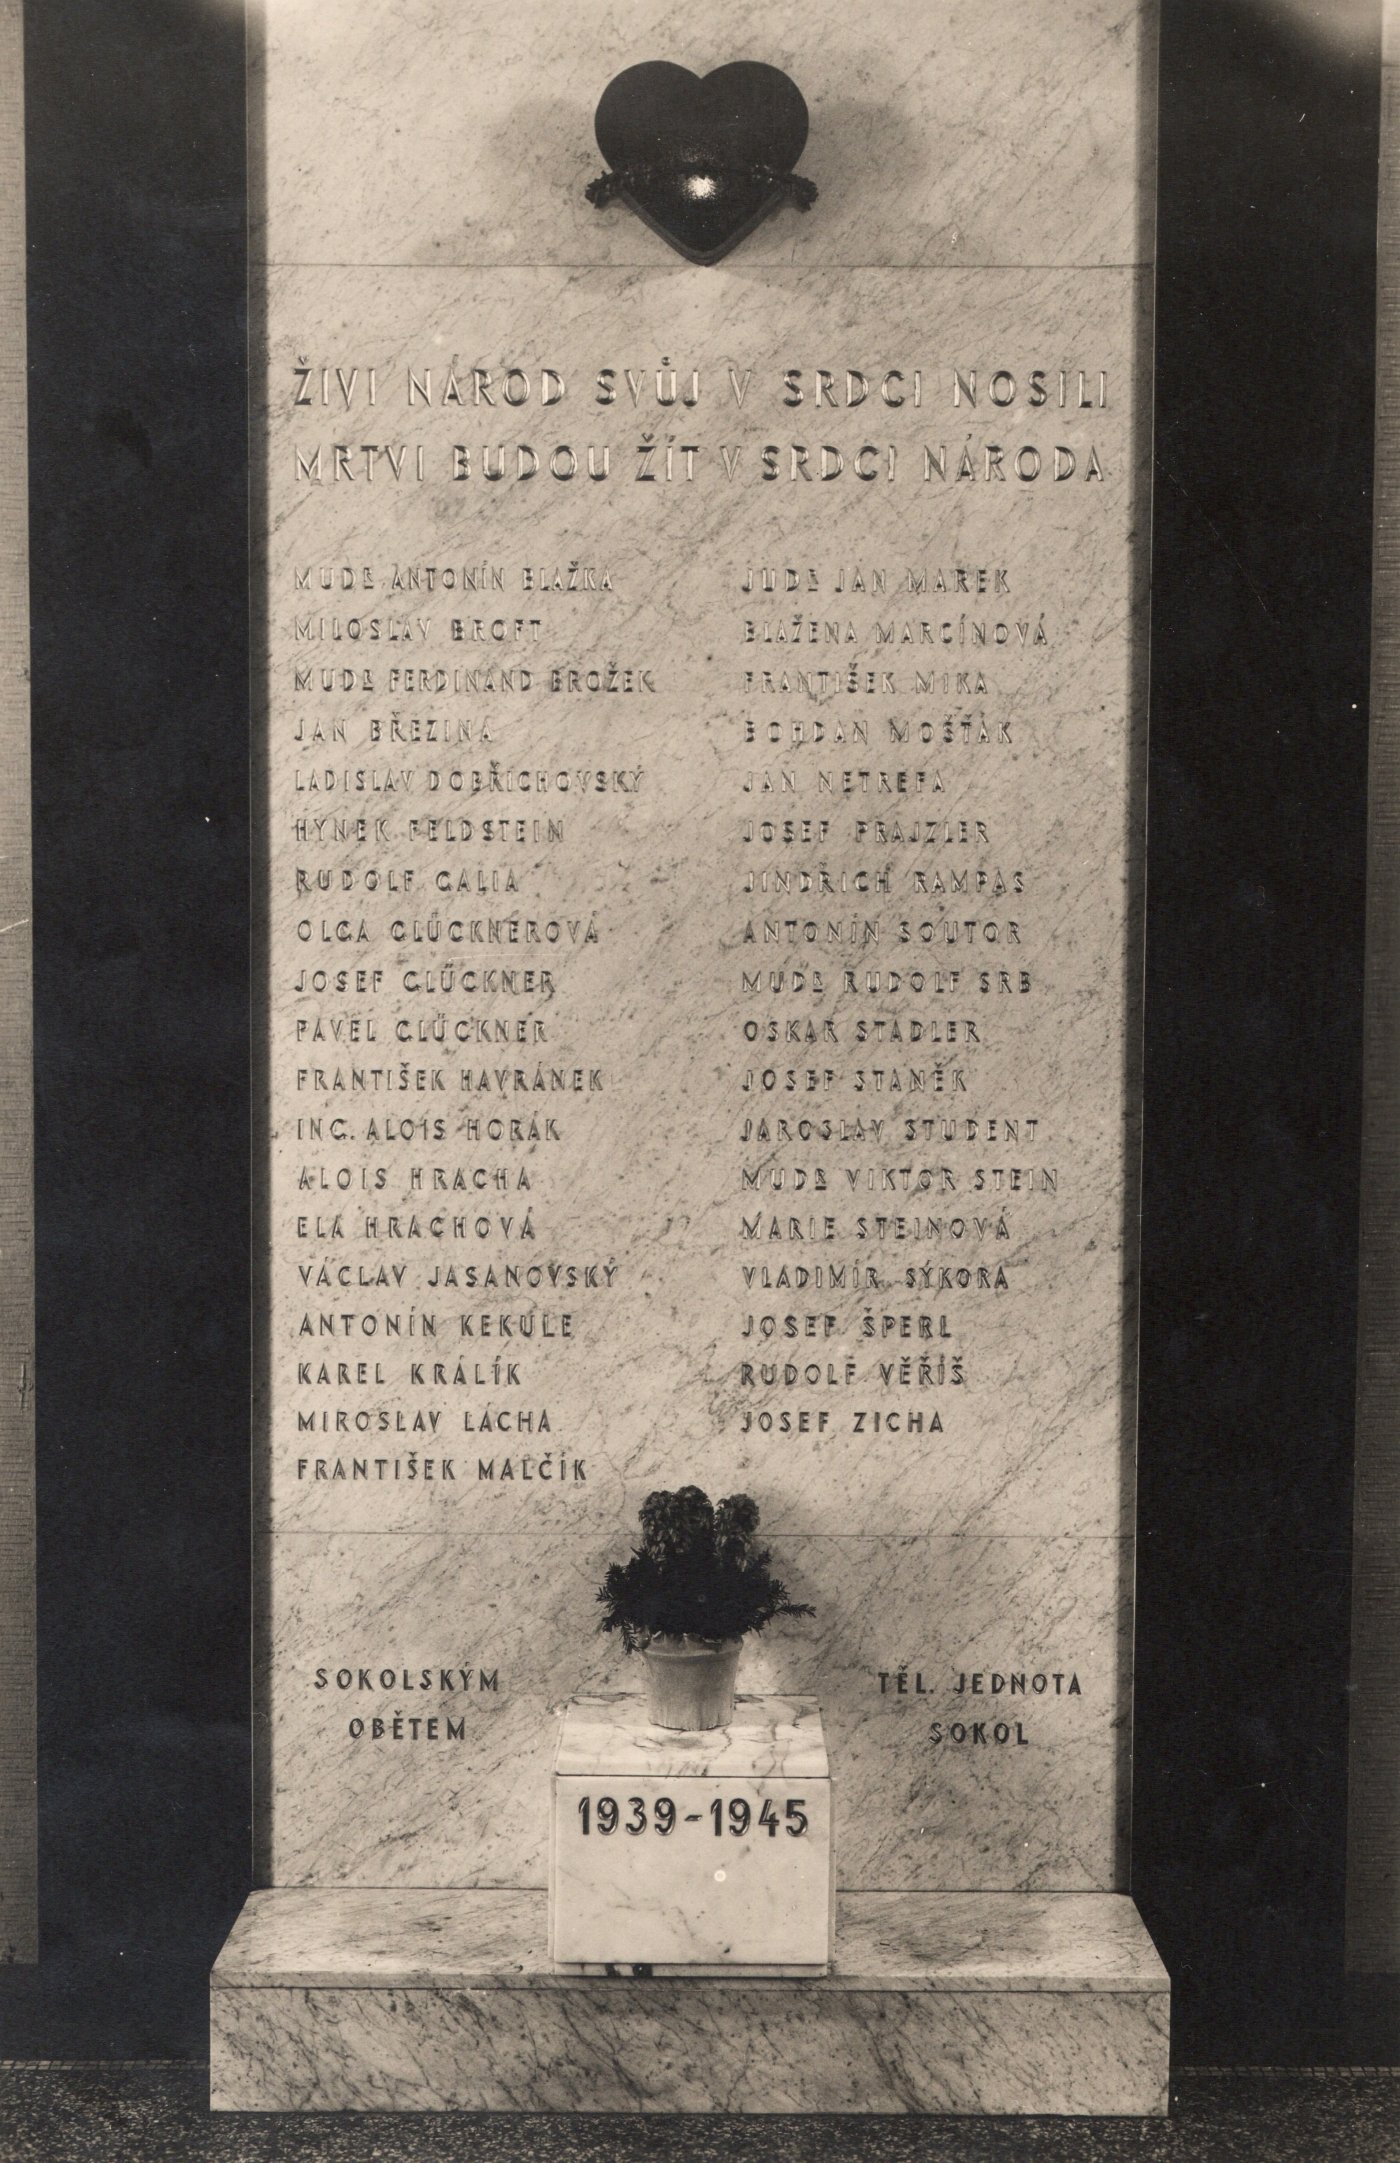 ŽIVI NÁROD SVŮJ V SRDCI NOSILI
MRTVI BUDOU ŽÍT V SRDCI NÁRODA
MUDR ANTONÍN BLAŽKA
MILOSLAV BROFT
MUDR FERDINAND BROŽEK
JAN BŘEZINA
LADISLAV DOBŘICHOVSKÝ
HYNEK FELDSTEIN
RUDOLF GALIA
OLGA GLÜCKNEROVÁ
JOSEF GLÜCKNER
PAVEL GLÜCKNER
FRANTIŠEK HAVRÁNEK
ING. ALOIS HORÁK
ALOIS HRACHA
ELA HRACHOVÁ
VÁCLAV JASANOVSKÝ
ANTONÍN KEKULE
KAREL KRÁLÍK
MIROSLAV LÁCHA
FRANTIŠEK MALČÍK
JUDR JAN MAREK
BLAŽENA MARCÍNOVÁ
FRANTIŠEK MIKA
BOHDAN MOŠŤÁK
JAN NETREFA
JOSEF PRAJZLER
JINDŘICH RAMPAS
ANTONÍN SOUTOR
MUDR RUDOLF SRB
OSKAR STADLER
JOSEF STANĚK
JAROSLAV STUDENT
MUDR VIKTOR STEIN
MARIE STEINOVÁ
VLADIMÍR SÝKORA
JOSEF ŠPERL
RUDOLF VĚŘÍŠ
JOSEF ZICHA
SOKOLSKÝM
OBĚTEM
TĚL. JEDNOTA
SOKOL
1939-1945